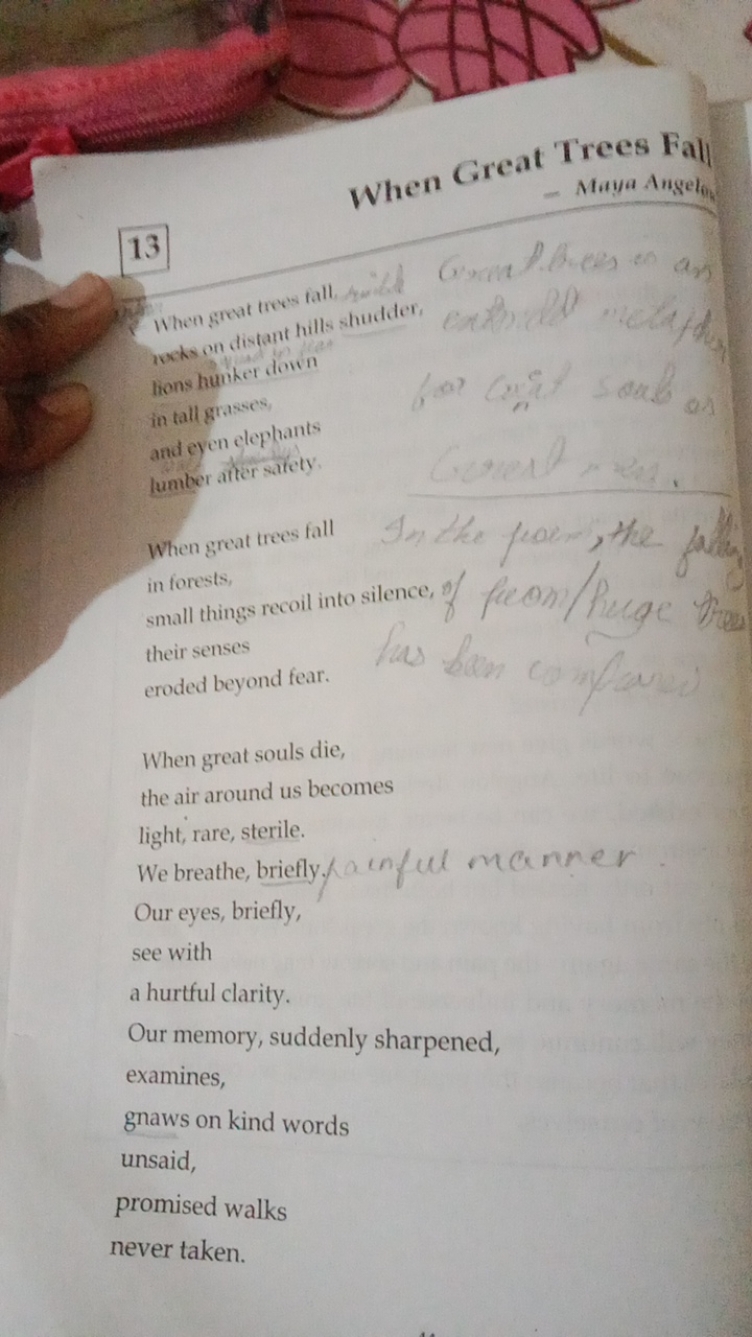 When Great Trees Fall
– Maya Angelou
13
When great trees fall,
rocks on distant hills shudder,
lions hunker down
in tall grasses,
and even elephants
lumber after safety.
Great trees is an
metaphor
for Great Souls or
Great men.
When great trees fall
in forests,
small things recoil into silence,
their senses
eroded beyond fear.
In the poem, the falling
of /huge trees
has been compared
When great souls die,
the air around us becomes
light, rare, sterile.
We breathe, briefly. painful manner.
Our eyes, briefly,
see with
a hurtful clarity.
Our memory, suddenly sharpened,
examines,
gnaws on kind words
unsaid,
promised walks
never taken.